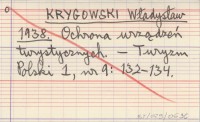 KRYGOWSKI Władysław
1938. Ochrona urządzeń
turystycznych. — Turyzm
Polski 1, nr 9: 132-134.